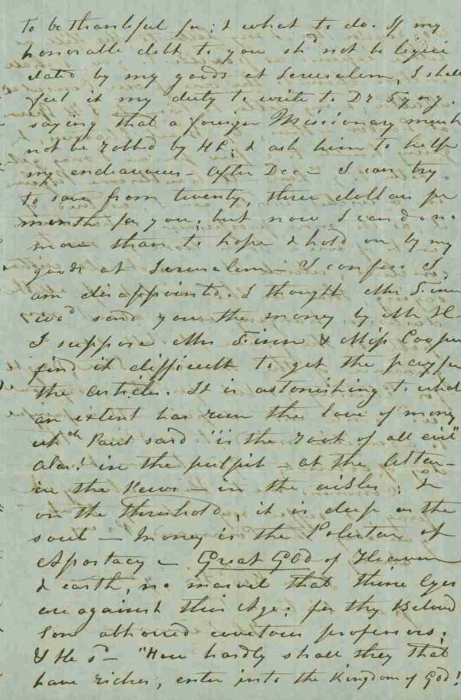 to be thankful for: & what to do. If my
honorable debt to you shd not be liqui
dated by my goods at Jerusalem, I shall
feel it my duty to write to Dr
saying that a foreign Missionary must
not be robbed by & ask him to help
my endeavours - After Dec - I can try
to save from twenty, three dollars per
month for you, but now I can do no
more than to hope & hold on by my
goods at Jerusalem - I confess I
am disappointed. I thought Mrs Finn
wod send you the money by Mr H-
I suppose Mrs Finn & Miss Cooper
find it difficult to get the pay for
the articles. It is astonishing to what
an extent has run the love of money
wh Paul said "is the root of all evil"
Alas! in the pulpit - at the Altar -
in the Pews - in the aisles: &
on the threshold, it is deep in the
soul - Money is the of
Apostacy - Great God of Heaven
& earth, no marvel that thine Eyes
are against this Age: for thy Beloved
Son abhorred covetous professors;
& He sd - "How hardly shall they that
have riches, enter into the Kingdom of God!